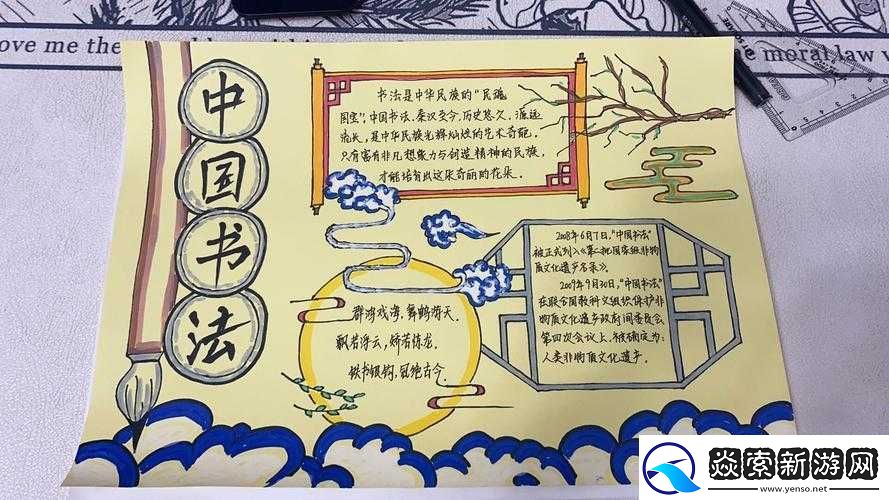 ove me the
the moral law
中
国
书
法
书法是中华民族的“民魂
国宝”,中国书法,秦汉至今,历史悠久,源远
流长,是中华民族光辉灿烂的艺术奇葩,
只有富有非凡想象力与创造精神的民族,
才能培育出这朵奇丽的花朵。
2008年6月7日,“中国书法”
被正式列入《第二批国家级非物
质文化遗产名录》。
2009年9月30日,“中国书法”
在联合国教科文组织保护非
物质文化遗产政府间委员会
第四次会议上,被确定为:
人类非物质文化遗产。
群鸿戏海,舞鹤游天。
飘若浮云,矫若惊龙。
铁书银钩,冠绝古今。
焱索新游网
www.yenso.net